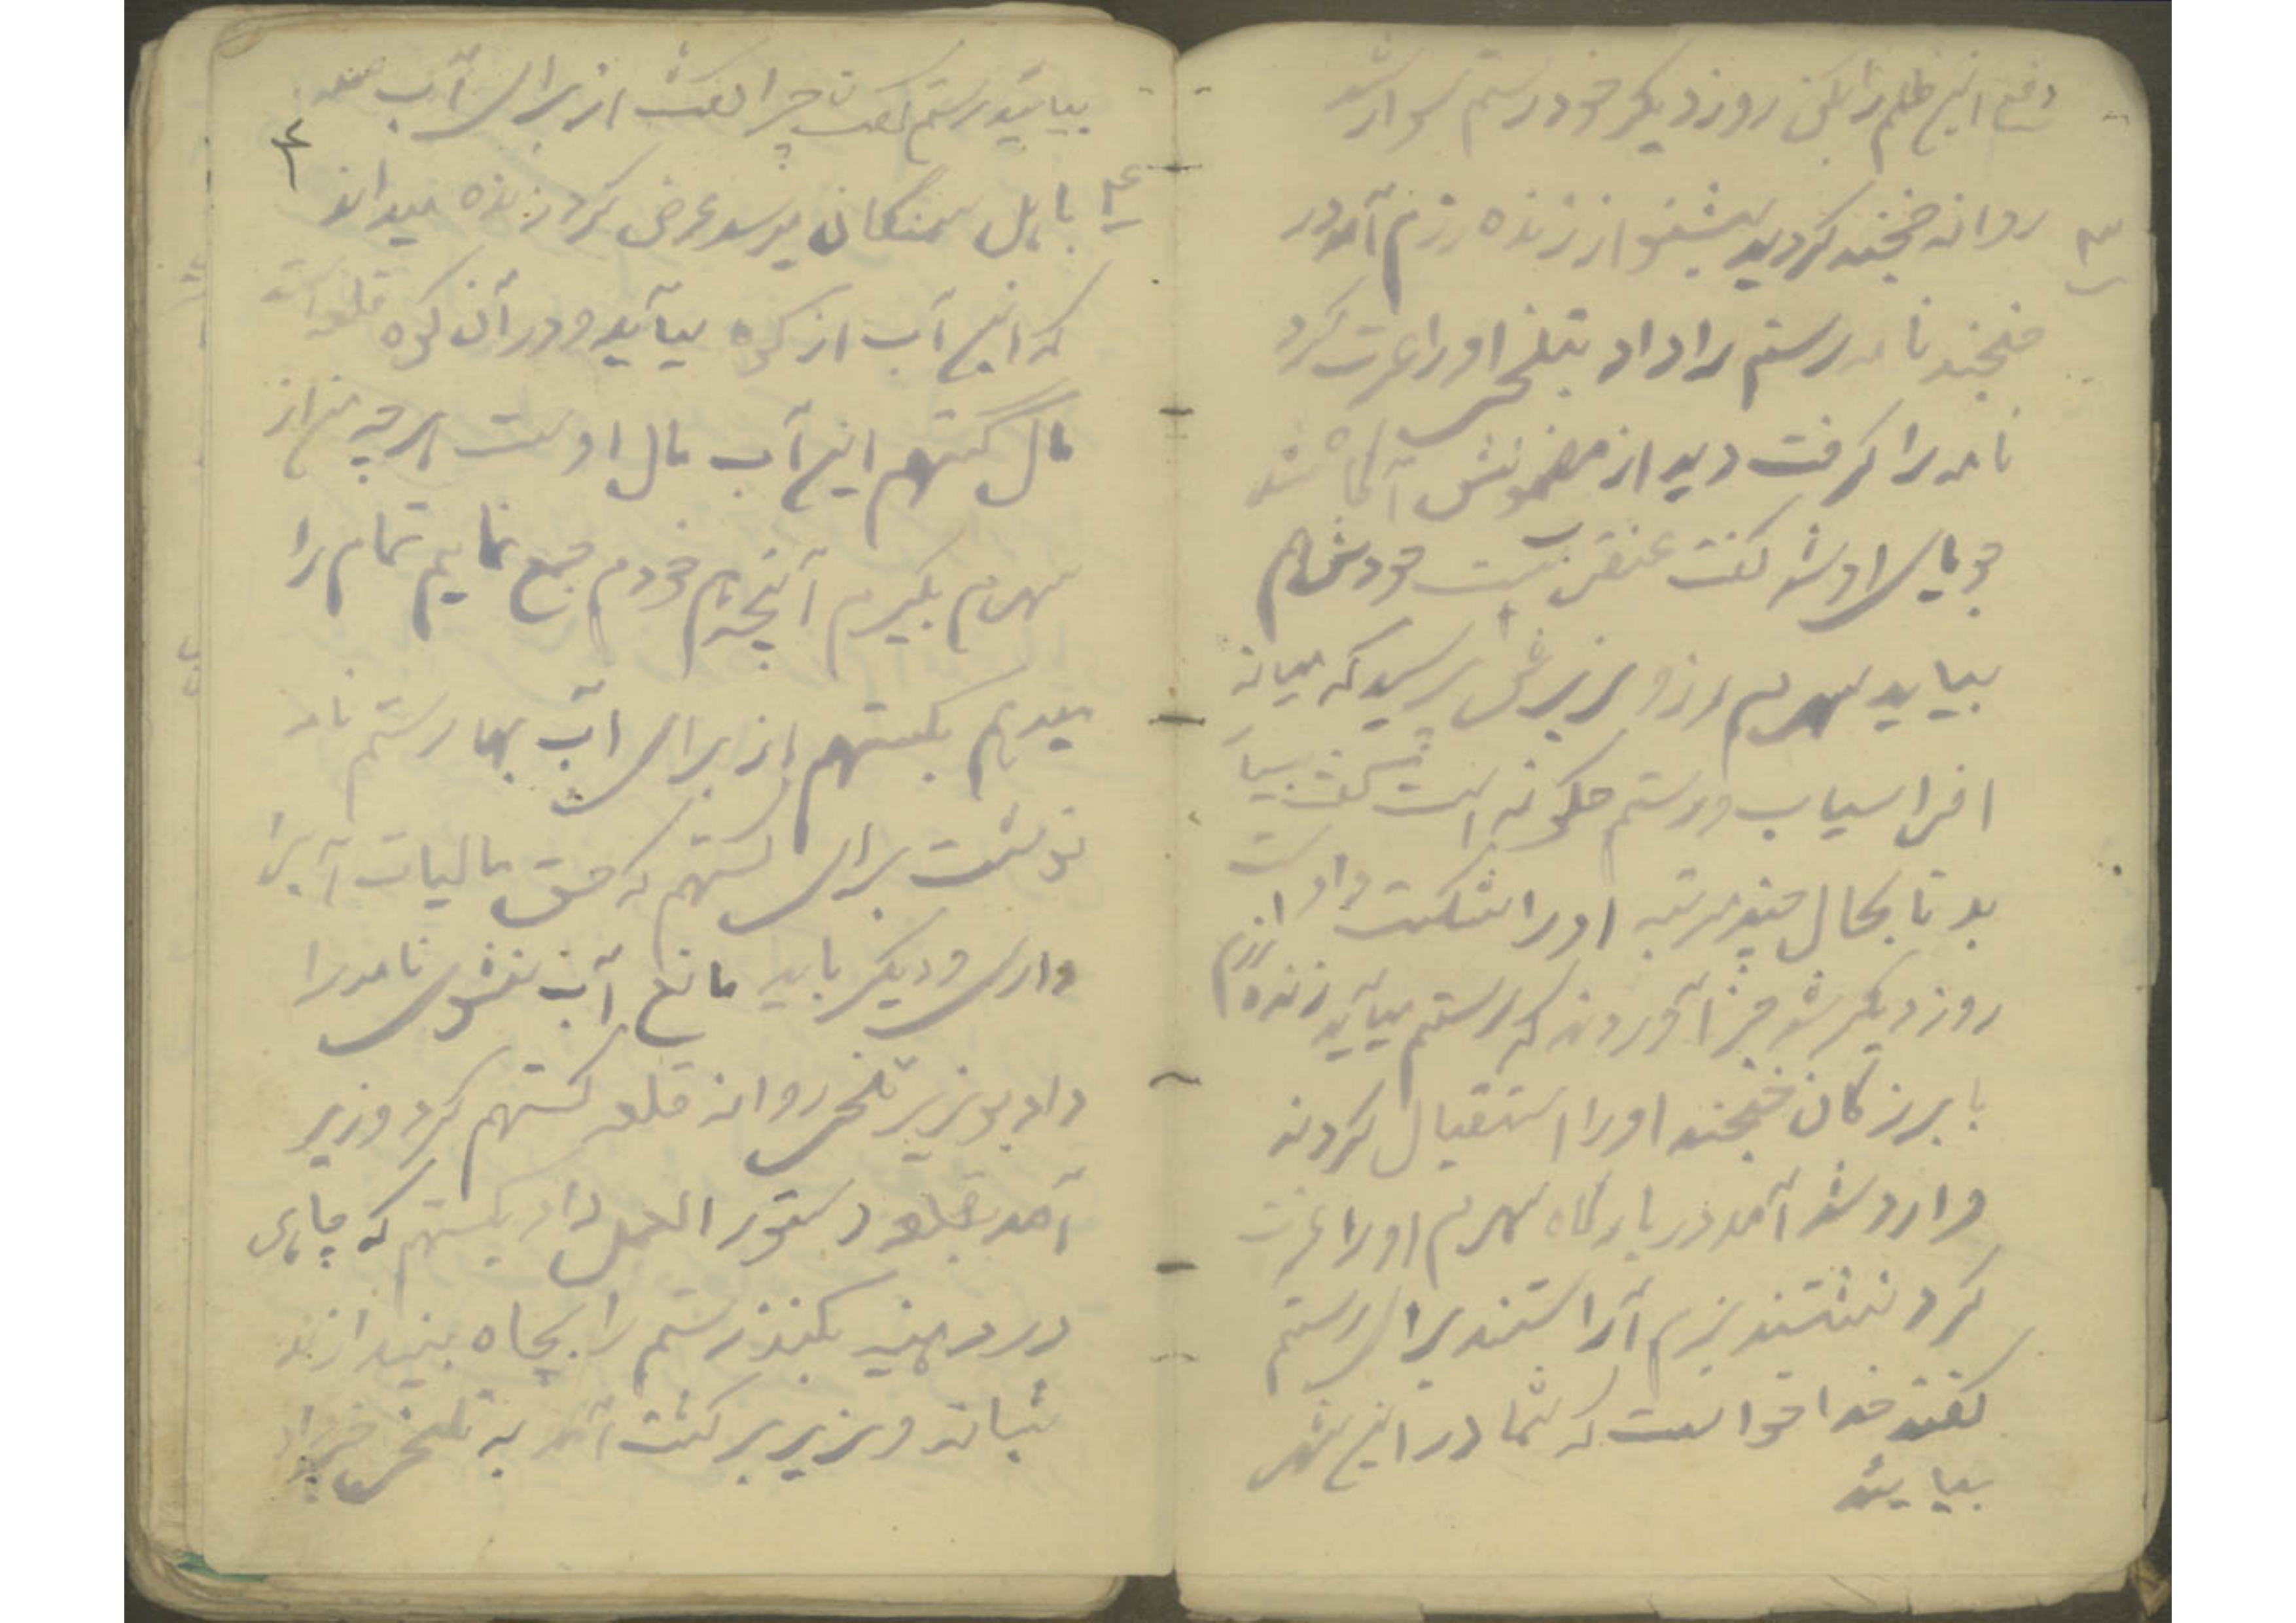 دفع این ظلم را بکن روز دیگر خود رستم سوار شد
۳
روانه خجند گردید بشنو از زنده رزم آمد در
خجند نامه رستم را داد بتلخی او را عزت کرد
نامه را گرفت دید از مضمونش آگاه شد
جویای او شد گفت عنقریب است خودش هم
بیاید سهرم از وزیرش پرسید که میانه
افراسیاب و رستم چگونه است گفت بسیار
بد تا بحال چند مرتبه او را شکست داد است
روز دیگر شد خبر آوردند که رستم میآید زنده رزم
با بزرگان خجند او را استقبال کردند
وارد شد آمد در بارگاه سهرم او را عزت
کرد نشستند بزم آراستند برای رستم
گفتند خدا خواست که شما در این شهر
بیایید
بیائید رستم گفت چرا گفت از برای آب
۴
۴ با اهل سمنگان میرسد عرض کرد زنده میداند
که این آب از کوه میآید و در آن کوه قلعه است
مال گستهم این آب مال اوست هر چه من از
سهرم بگیرم آنچه هم خودم جمع نمایم تمام را
میدهم بگستهم از برای آب بها رستم نامه
نوشت برای گستهم که حق مالیات آب را
داری و دیگر باید مانع آب نشوی نامه را
داد بوزیر تلخی روانه قلعه گستهم کرد وزیر
آمد بقلعه دستور العمل داد بگستهم که چاهی
در دهنه بکنند رستم را بچاه بیندازند
شبانه وزیر برگشت آمد به تلخی خبر داد